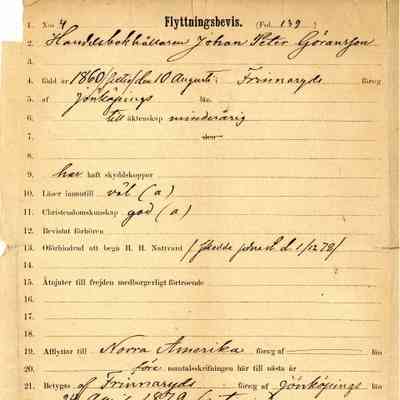 Flyttningsbevis.
1. N:o 4 (Fol. 139)
2. Handelsbokhållaren Johan Peter Göransson
3.
4. född år 1860 den 10 Augusti; Frinnaryds förs:g
5. af Jönköpings län.
6. till äktenskap minderårig
7. den
8.
9. har haft skyddskoppor
10. Läser innantill väl (a)
11. Christendomskunskap god (a)
12. Bevistat förhören
13. Oförhindrad att begå H. H. Nattvard d. 1/12 78/
14.
15. Åtnjuter till frejden medborgerligt förtroende
16.
17.
18.
19. Afflyttar till Norra Amerika förs:g af län
20. före mantalsskrifningen här till nästa år
21. Betygas af Frinnaryds förs:g af Jönköpings län
April 1879